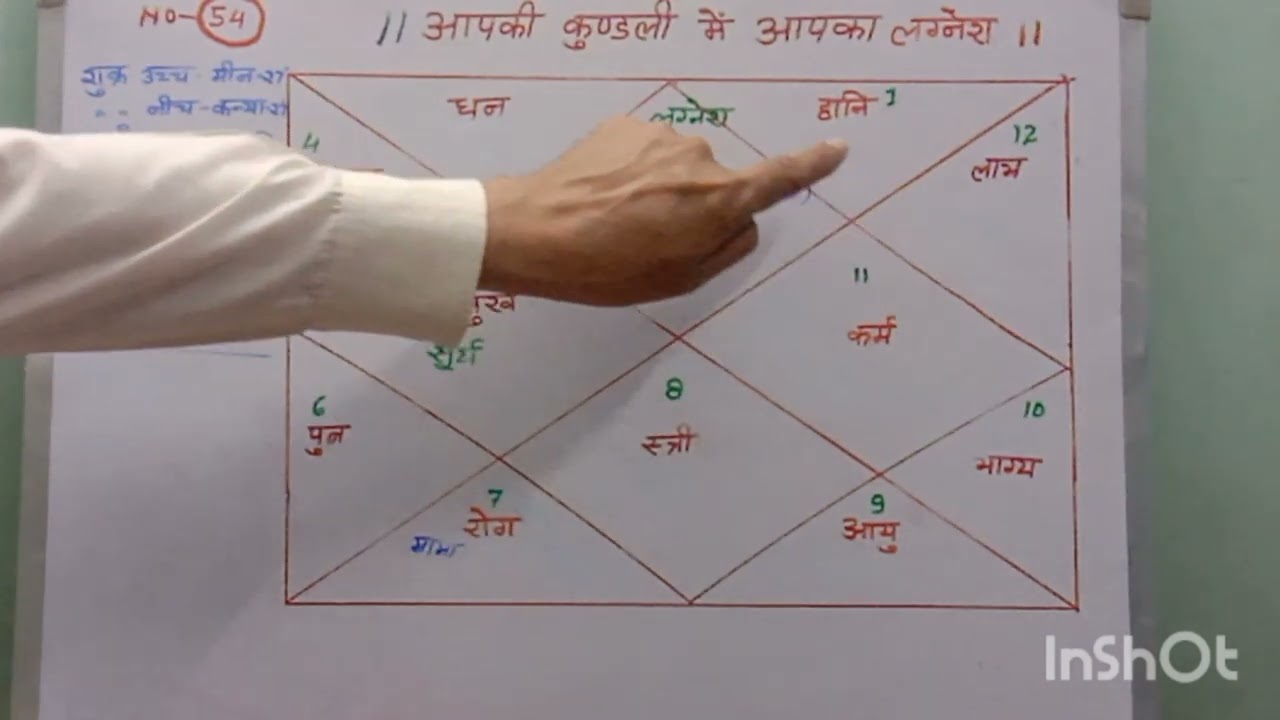 NO-54
|| आपकी कुण्डली में आपका लग्नेश ||
शुक्र उच्च मीन
नीच कन्या
धन
लग्नेश
हानि 1
12
लाभ
4
11
कर्म
सूर्य
6
पुत्र
8
स्त्री
10
भाग्य
7
रोग
मामा
9
आयु
InShOt